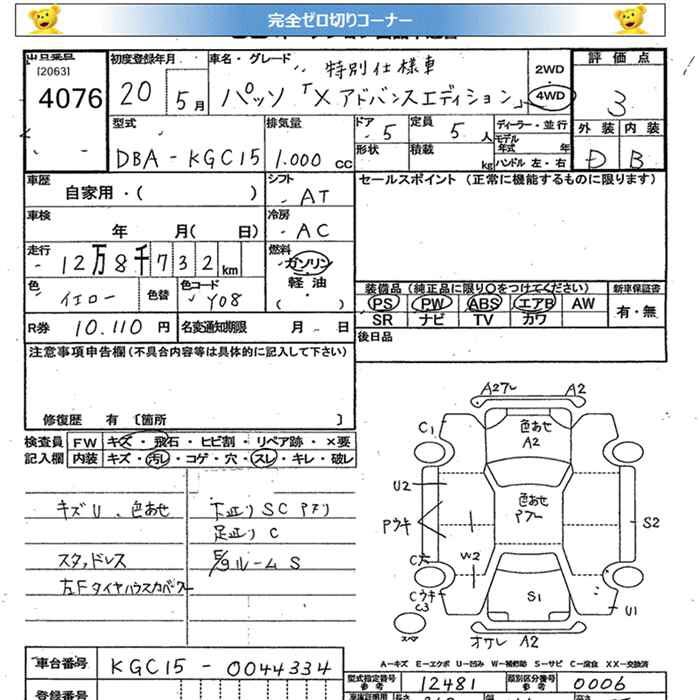 完全ゼロ切りコーナー
出品番号 初度登録年月 車名・グレード 評価点
[2063]
4076 20 5月 特別仕様車
パッソ「X アドバンスエディション」 2WD 4WD 3
型式 排気量 ドア 5 定員 5人 ディーラー・並行 外装 内装
DBA-KGC15 1.000cc 形状 積載 kg モデル年式 年 D B
ハンドル 左・右
車歴 自家用・( ) シフト AT セールスポイント (正常に機能するものに限ります)
車検 年 月( 日) 冷房 AC
走行 12万8千732km 燃料 ガソリン 軽油 ( )
色 イエロー 色替 色コード Y08
装備品 (純正品に限り○をつけてください) 新車保証書
PS PW ABS エアB AW 有・無
SR ナビ TV カワ
R券 10.110円 名変通知期限 月 日 後日品
注意事項申告欄 (不具合内容等は具体的に記入して下さい)
修復歴 有 〔箇所 〕
検査員 FW キズ・飛石・ヒビ割・リペア跡・×要
記入欄 内装 キズ・汚レ・コゲ・穴・スレ・キレ・破レ
キズU、色あせ
下廻り SC Pアリ
足廻り C
スタッドレス
E/gルーム S
左Fタイヤハウスカバー
A27 A2
C1 色あせ A2
U2 色あせ
Pウキ S2
W2
C穴
Cウキ C3 S1 U1
スペア
A2
A-キズ E-エクボ U-凹み W-補修跡 S-サビ C-腐食 XX-交換済
車台番号 KGC15-0044334
型式指定番号 参考 12481 類別区分番号 参考 0006
登録番号